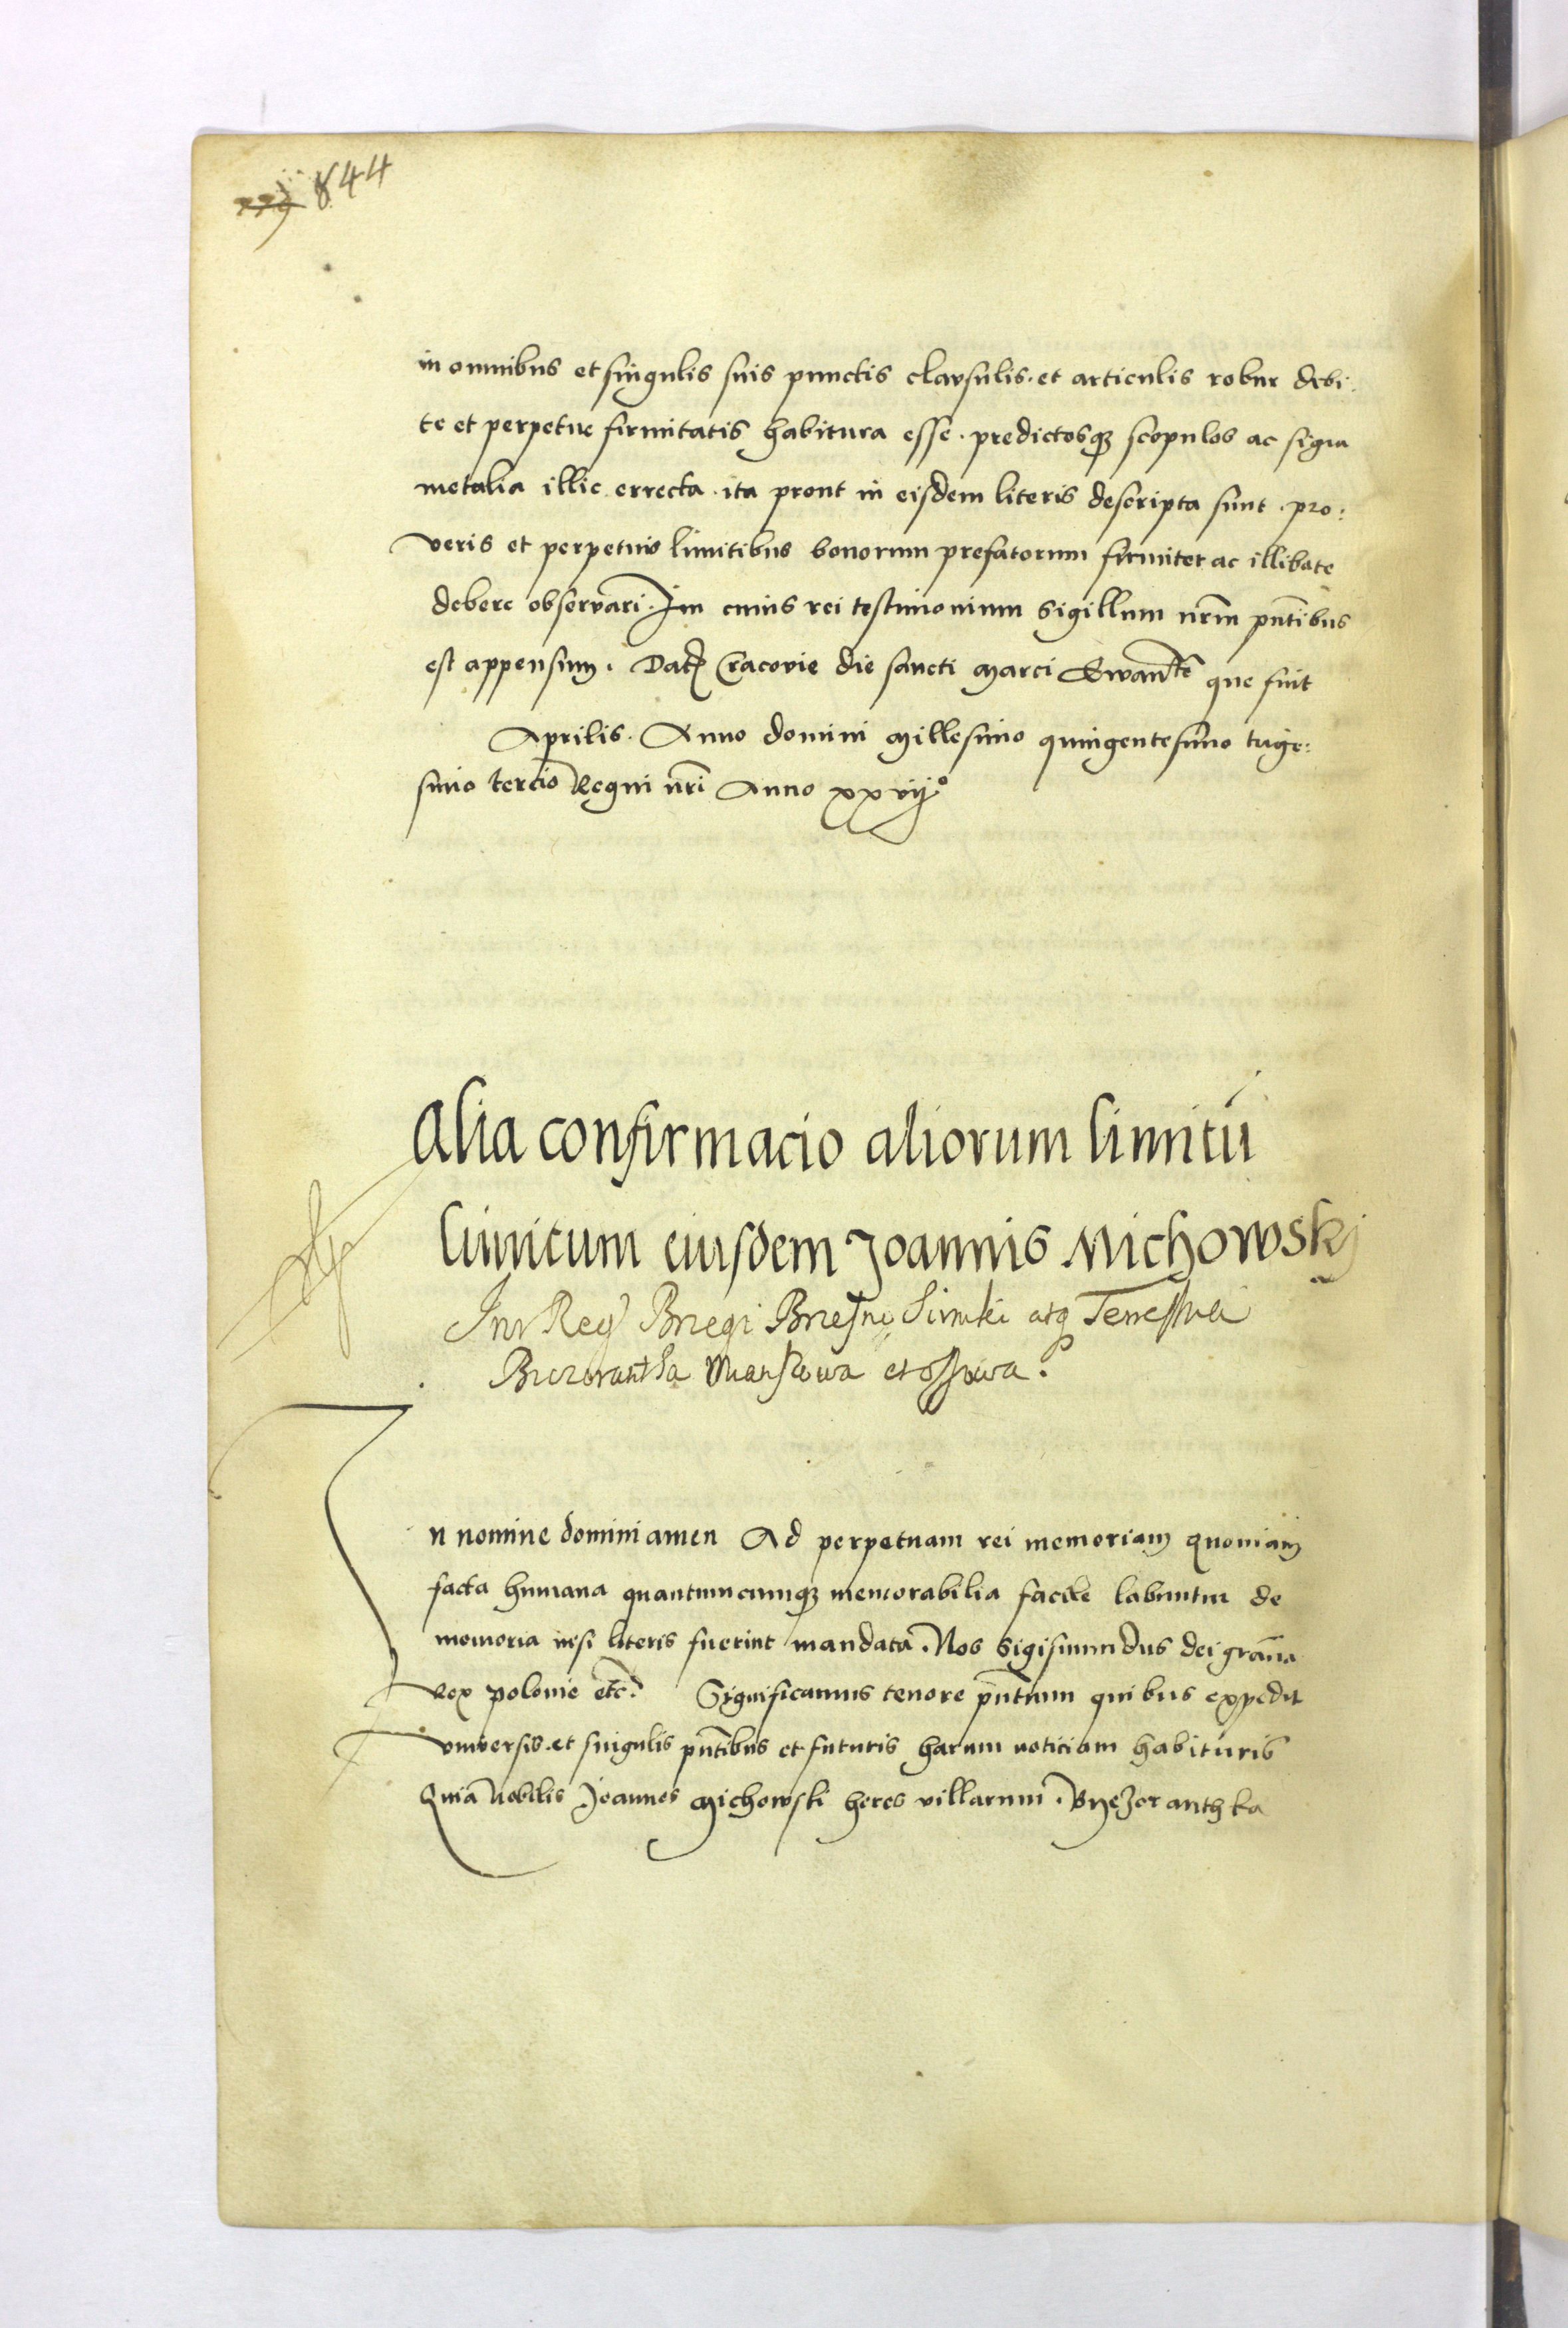 844
in omnibus et singulis suis punctis clausulis. et articulis robur debi:
te et perpetue firmitatis habitura esse. predictosqȝ scopulos ac signa
metalia illic errecta. ita prout in eisdem literis descripta sunt. pro:
veris et perpetuis limitibus bonorum prefatorum firmiter ac illibate
debere observari. In cuius rei testimonium Sigillum nr̄m pn̄tibus
est appensum. Datȝ Cracovie die sancti Marci Ewan̄te que fuit
Aprilis. Anno domini Millesimo quingentesimo trige:
simo tercio Regni nr̄i Anno xxvij°
Alia confirmacio aliorum limitū
limitum eiusdem Joannis Michowskj
Int Reg Bnegi atq
et Ossowa.
In nomine domini amen Ad perpetuam rei memoriam Quoniam
facta humana quantumcumqȝ memorabilia facile labuntur de
memoria nisi literis fuerint mandata. Nos Sigismundus dei gra͞tia
Rex Polonie etc. Significamus tenore pn̄tium quibus expedit
universis. et singulis pn̄tibus et futuris harum noticiam habituris
Quia Nobilis Joannes Michowski heres villarum. Byezoranthka